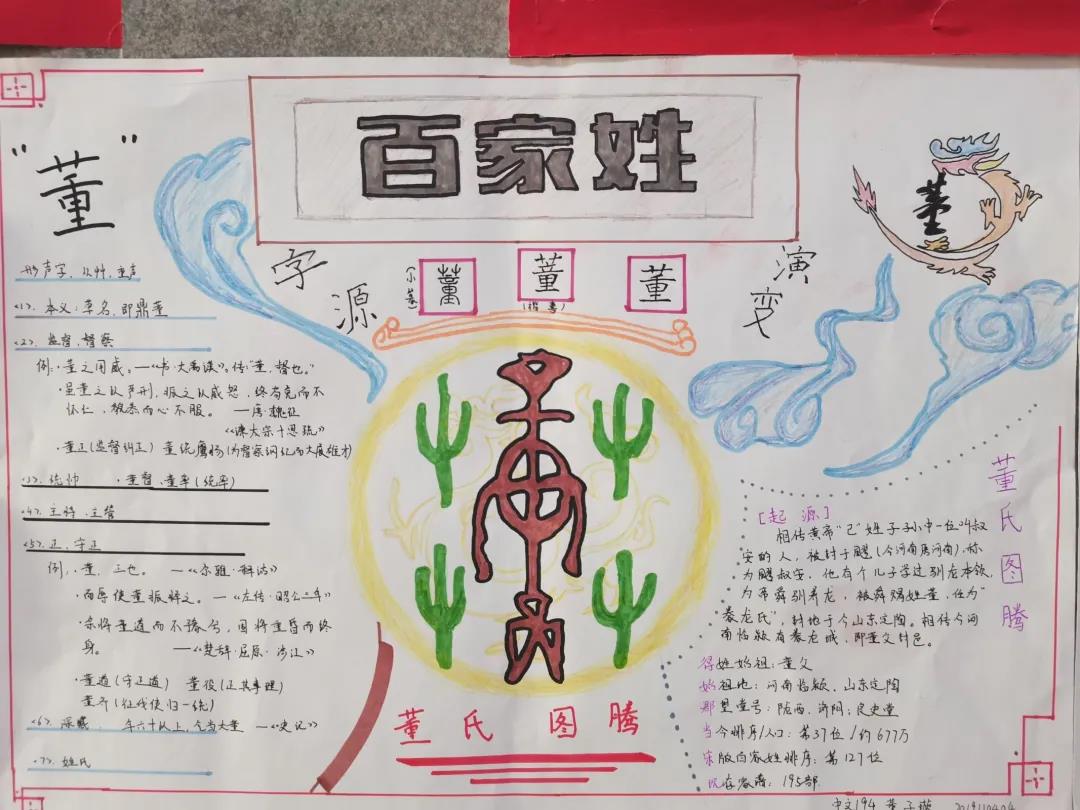 百家姓
"董"
形声字，从艸，重声
<1>、本义：草名，即鼎董
<2>、监督，督察
例：·董之用威。—《书·大禹谟》。传"董，督也。"
·虽董之以严刑，振之以威怒，终苟免而不
怀仁，貌恭而心不服。 —唐·魏征
《谏太宗十思疏》
·董正(监督纠正) 董统鹰扬(为督察调化的大展雄才)
<3>、统帅 ·董督、董率(统率)
<4>、主持、主管
<5>、正、守正
例，·董，正也。 —《尔雅·释诂》
·而辱使董振择之。—《左传·昭公三年》
·余将董道而不豫兮，固将重昏而终
身。 —《楚辞·屈原·涉江》
·董道(守正道) 董役(正其事理)
董齐(征伐使归一统)
<6>、深藏 年六十以上，气当大董 —《史记》
<7>、姓氏
字源
(小篆)
董
董
(楷书)
董
演变
董
董氏图腾
董氏图腾
[起源]
相传黄帝"己"姓子孙中一位叫叔
安的人，被封于飂(今河南唐河南)，称
为飂叔安，他有个儿子学过驯龙本领，
为帝舜驯养龙，被舜赐姓董，任为"
豢龙氏"，封地于今山东定陶，相传今河
南临颍有豢龙城，即董父封邑。
得姓始祖：董父
始祖地：河南临颍、山东定陶
郡望堂号：陇西、济阴；良史堂
当今排序/人口：第37位/约677万
宋版百家姓排序：第127位
现存家谱：195部
中文194 董